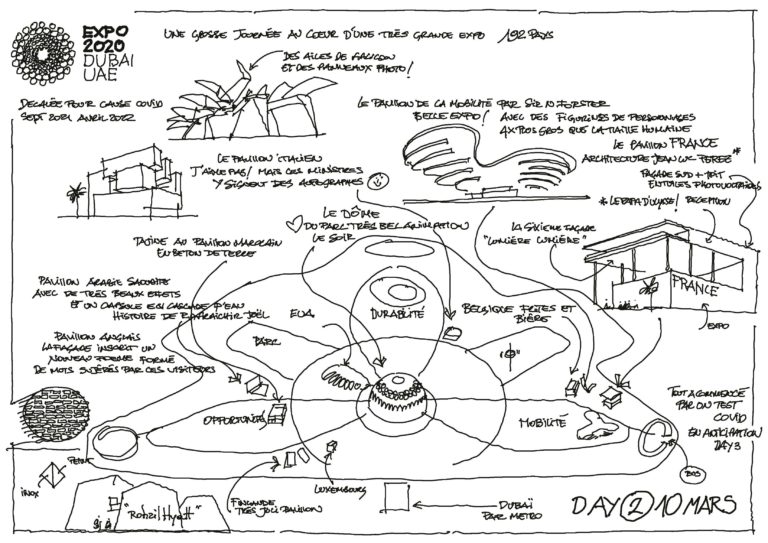 EXPO
2020
DUBAI
UAE
UNE GROSSE JOURNÉE AU COEUR D'UNE TRÈS GRANDE EXPO 192 PAYS
DES AILES DE FAUCON
ET DES PANNEAUX PHOTO!
DECALÉE POUR CAUSE COVID
SEPT 2021 AVRIL 2022
LE PAVILLON DE LA MOBILITÉ PAR SIR N FORSTER
BELLE EXPO! AVEC DES FIGURINES DE PERSONNAGES
4X PLUS GROS QUE LA TAILLE HUMAINE
LE PAVILLON FRANCE
ARCHITECTURE JEAN LUC PEREZ
FAÇADE SUD + TOIT
EN TUILES PHOTOVOLTAIQUES
* LE PAPA D'OLYSSE! RECEPTION
LE PAVILLON ITALIEN
J'AIME PAS! MAIS CES MINISTRES
Y SIGNENT DES AUTOGRAPHES
LE DÔME
DU PARC TRÈS BEL ANIMATION
LE SOIR
LA SIXIÈME FAÇADE
"LUMIÈRE LUMIÈRE"
TAJINE AU PAVILLON MAROCAIN
EN BETON DE TERRE
FRANCE
EXPO
PAVILLON ARABIE SAOUDITE
AVEC DE TRÈS BEAUX EFFETS
ET UN CAPSULE EN CASCADE D'EAU
HISTOIRE DE RAFRAICHIR JOËL
EUA
DURABLITÉ
BELGIQUE FRITES ET
BIÈRE
PARC
PAVILLON ANGLAIS
LA FAÇADE INSCRIT UN
NOUVEAU POEME FORMÉ
DE MOTS SUGÉRÉS PAR LES VISITEURS
OPPORTUNITÉ
MOBILITÉ
TOUT A COMMENCÉ
PAR UN TEST
COVID
EN ANTICIPATION
DAY 3
PEINT
INOX
BUS
LUXEMBOURG
FINLANDE
TRÈS JOLI PAVILLON
DUBAÏ
PAR METRO
DAY 2 10 MARS